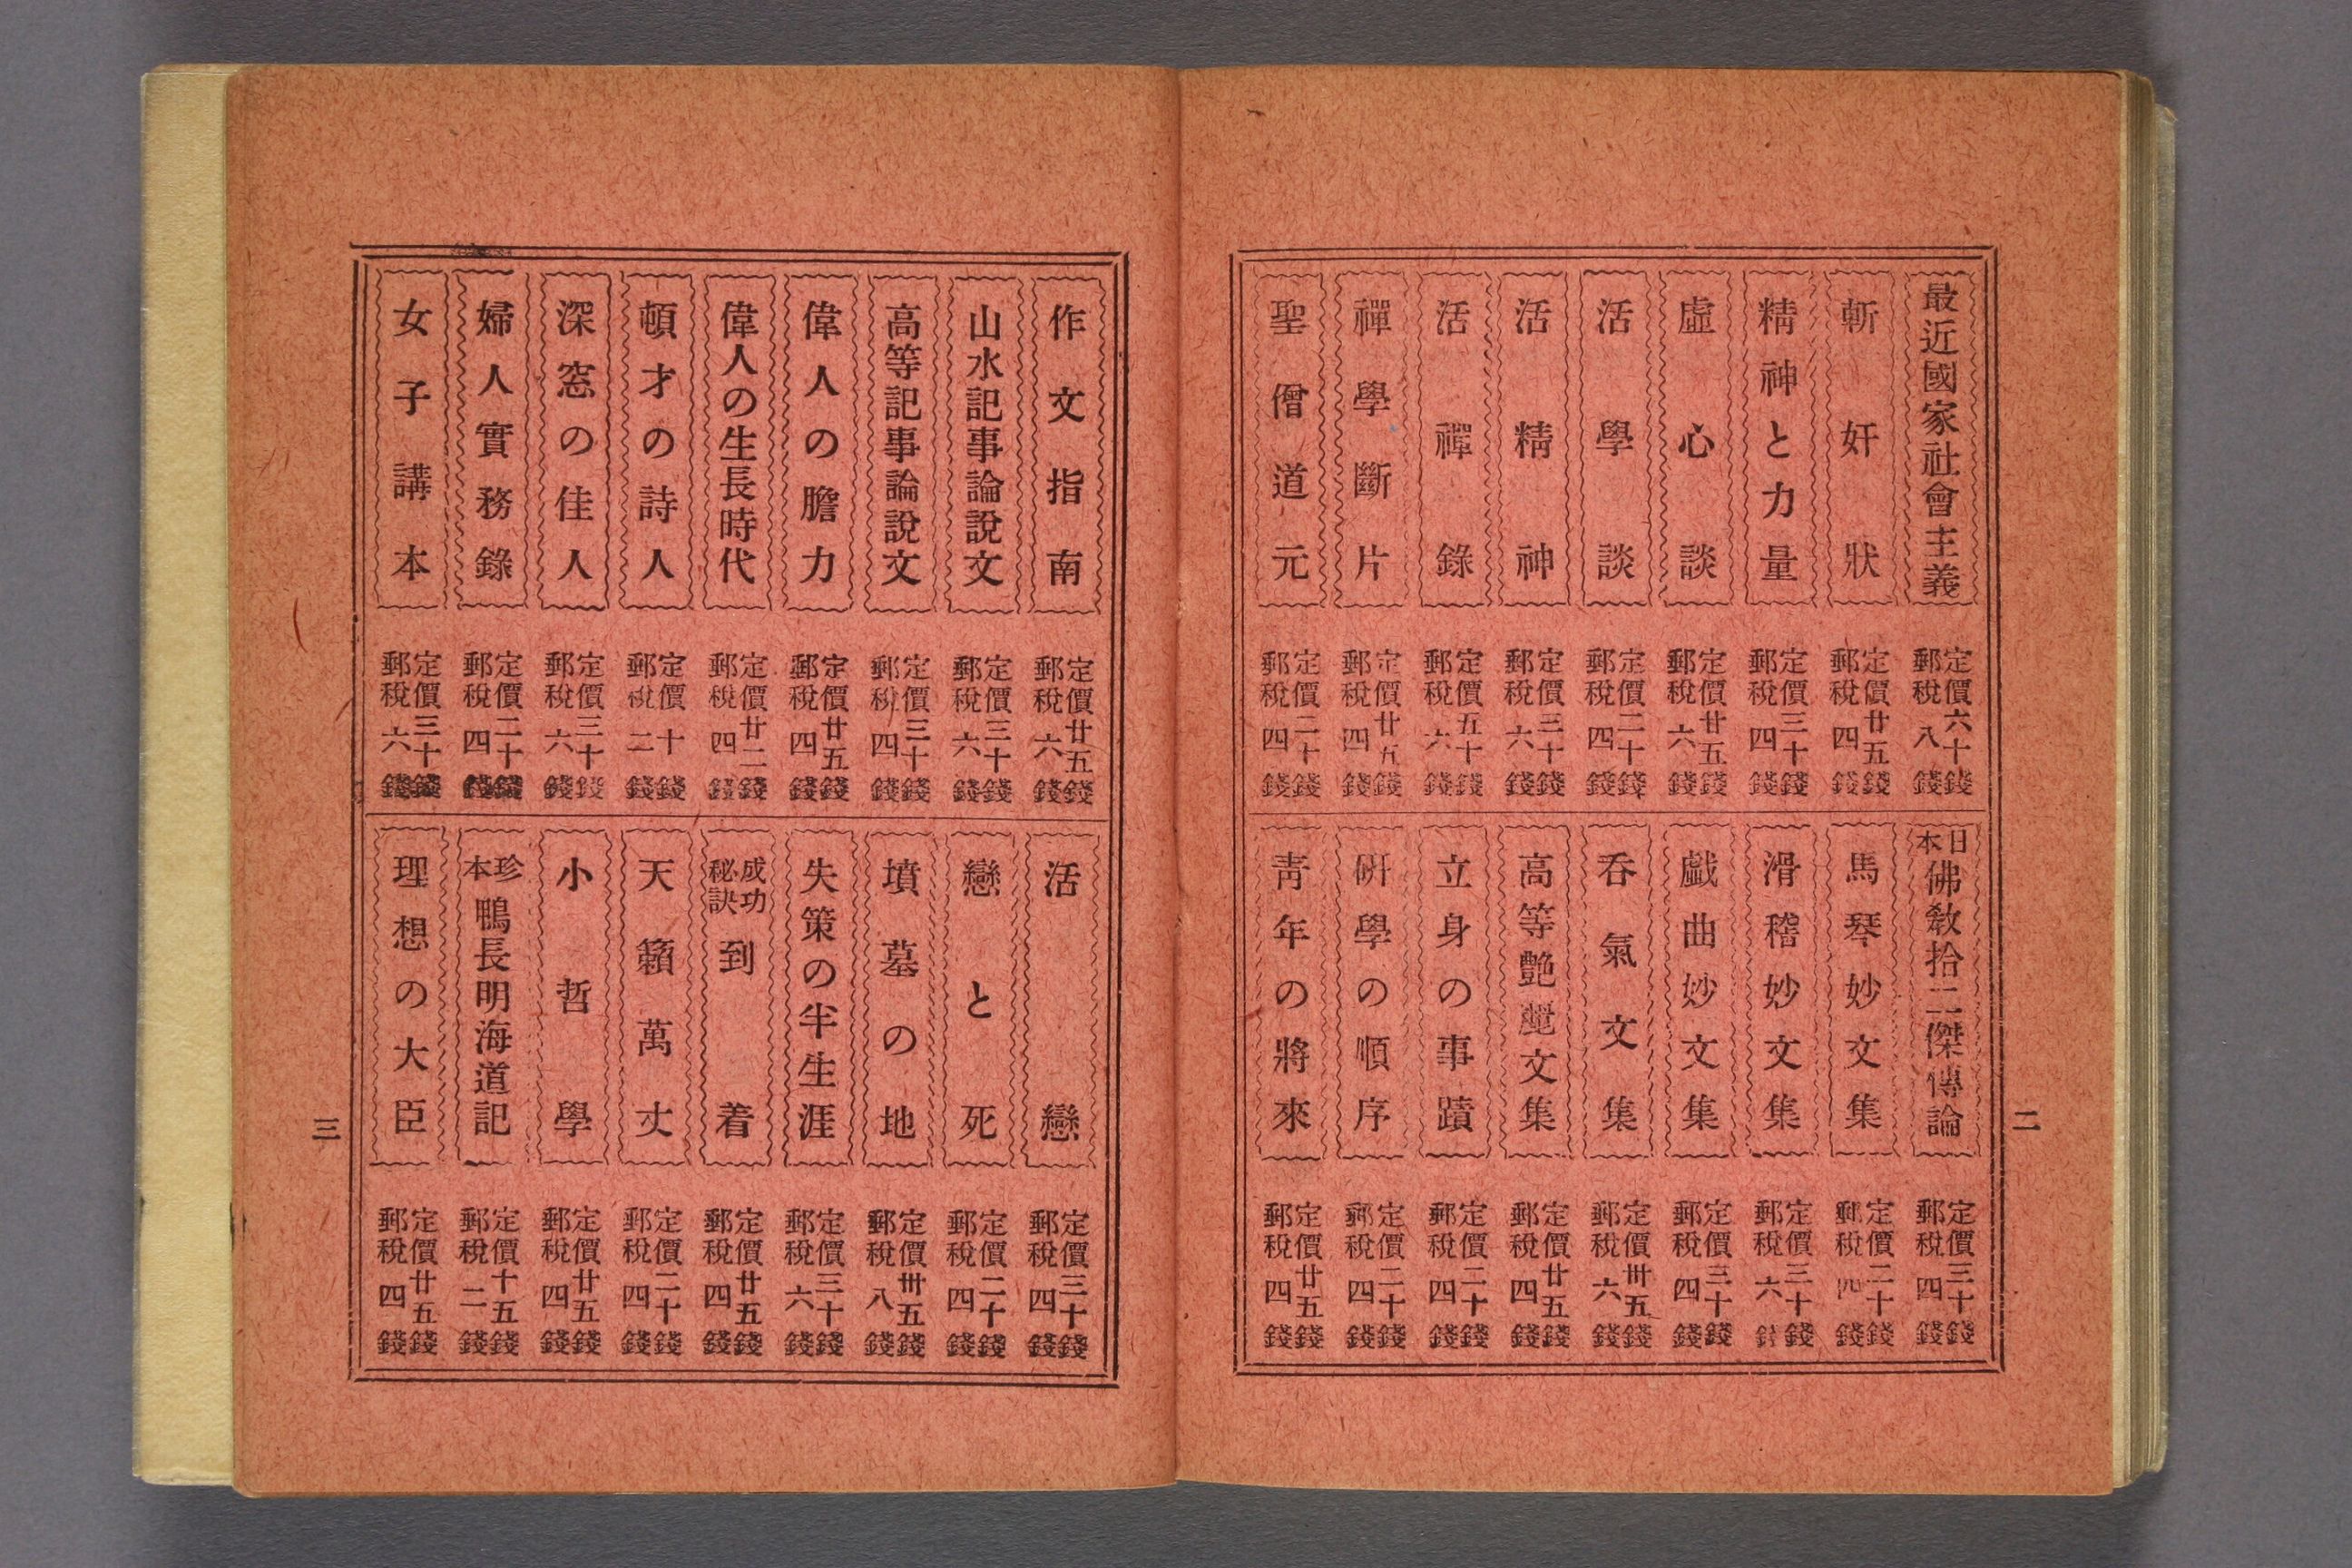 最近國家社會主義
定價六十錢
郵稅八錢
斬奸狀
定價廿五錢
郵稅四錢
精神と力量
定價三十錢
郵稅四錢
虛心談
定價廿五錢
郵稅六錢
活學談
定價二十錢
郵稅四錢
活精神
定價三十錢
郵稅六錢
活禪錄
定價五十錢
郵稅六錢
禪學斷片
定價廿五錢
郵稅四錢
聖僧道元
定價二十錢
郵稅四錢
日本佛敎拾二傑傳論
定價三十錢
郵稅四錢
馬琴妙文集
定價二十錢
郵稅四錢
滑稽妙文集
定價三十錢
郵稅六錢
戯曲妙文集
定價三十錢
郵稅四錢
呑氣文集
定價卅五錢
郵稅六錢
高等艶麗文集
定價廿五錢
郵稅四錢
立身の事蹟
定價二十錢
郵稅四錢
硏學の順序
定價二十錢
郵稅四錢
靑年の將來
定價廿五錢
郵稅四錢
二
作文指南
定價廿五錢
郵稅六錢
山水記事論說文
定價三十錢
郵稅六錢
高等記事論說文
定價三十錢
郵稅四錢
偉人の膽力
定價廿五錢
郵稅四錢
偉人の生長時代
定價廿二錢
郵稅四錢
頓才の詩人
定價十錢
郵稅二錢
深窓の佳人
定價三十錢
郵稅六錢
婦人實務錄
定價二十錢
郵稅四錢
女子講本
定價三十錢
郵稅六錢
活戀
定價三十錢
郵稅四錢
戀と死
定價二十錢
郵稅四錢
墳墓の地
定價卅五錢
郵稅八錢
失策の半生涯
定價三十錢
郵稅六錢
成功秘訣到着
定價廿五錢
郵稅四錢
天籟萬丈
定價二十錢
郵稅四錢
小哲學
定價廿五錢
郵稅四錢
珍本鴨長明海道記
定價十五錢
郵稅二錢
理想の大臣
定價廿五錢
郵稅四錢
三